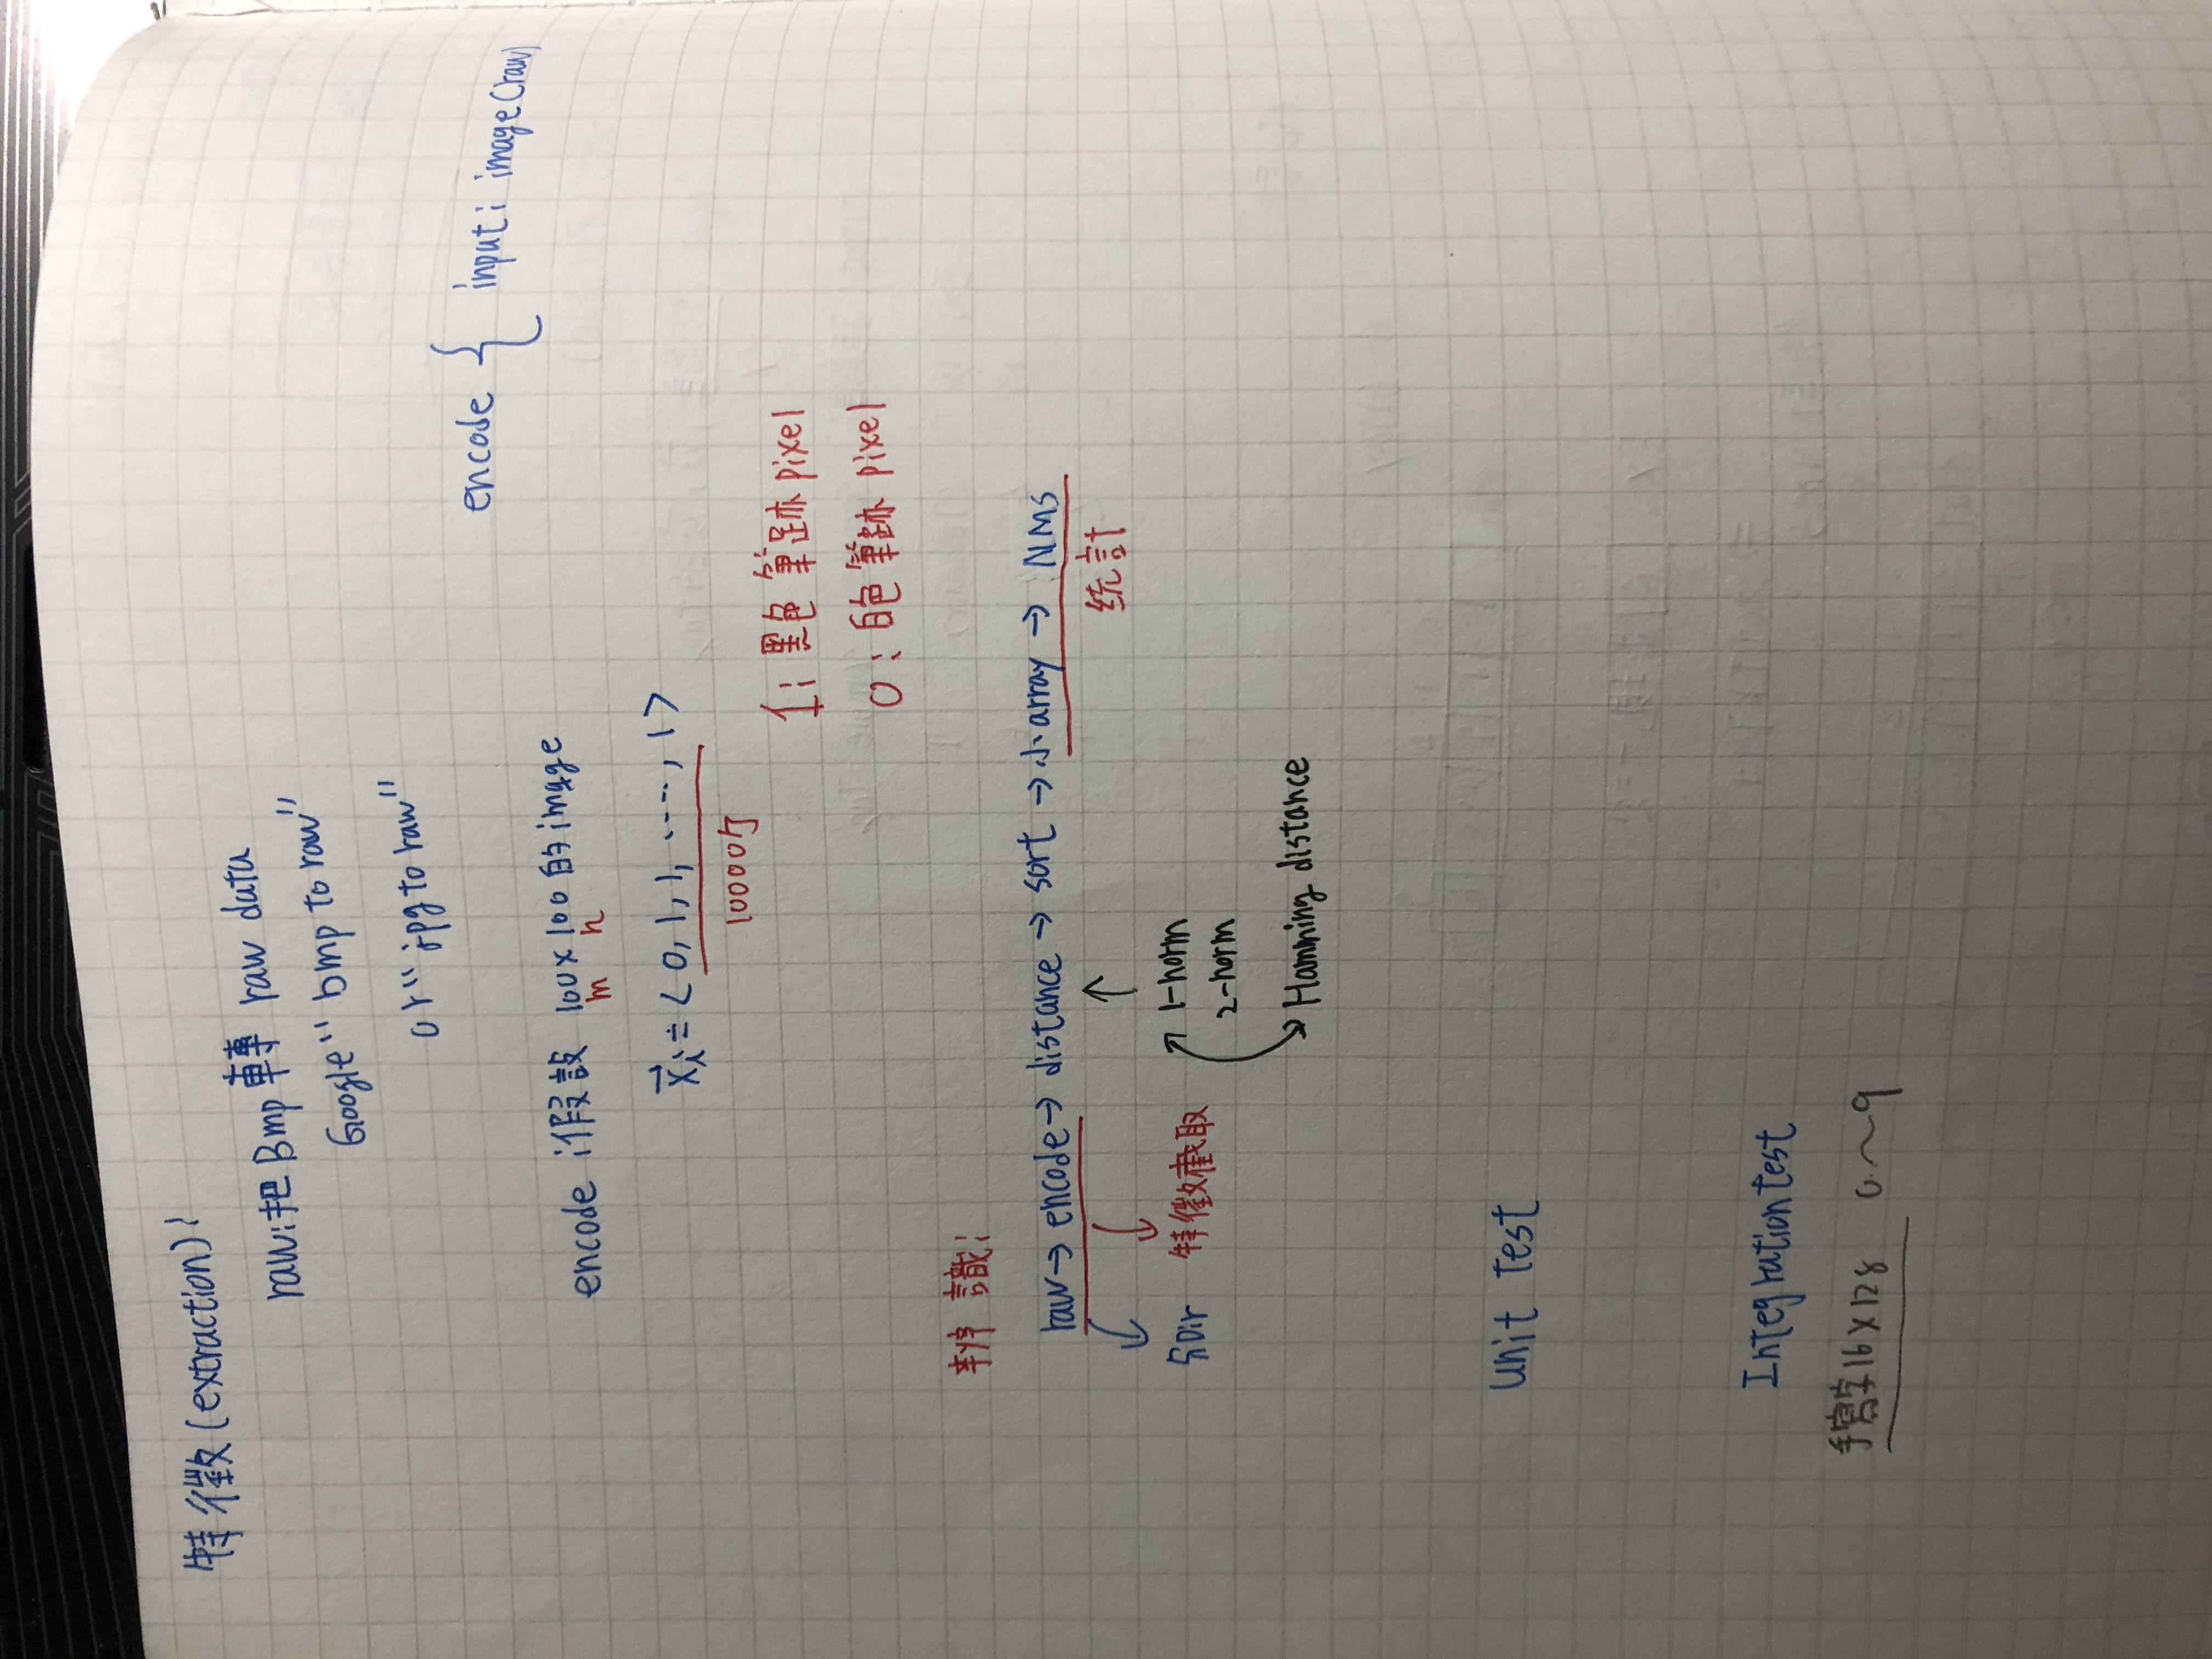 特徵(extraction):
raw:把Bmp轉 raw data
Google"bmp to raw"
or"jpg to raw"
encode { input: image(raw)
encode:假設 100x100的image
m n
x⃗i = < 0, 1, 1, ....., 1 >
10000
1: 黑色筆跡pixel
0: 白色筆跡pixel
辨識:
raw→encode→distance→sort→小array→NMS
統計
Dir 特徵截取
1-norm
2-norm
Hamming distance
unit test
Integration test
手寫字16x128 0~9